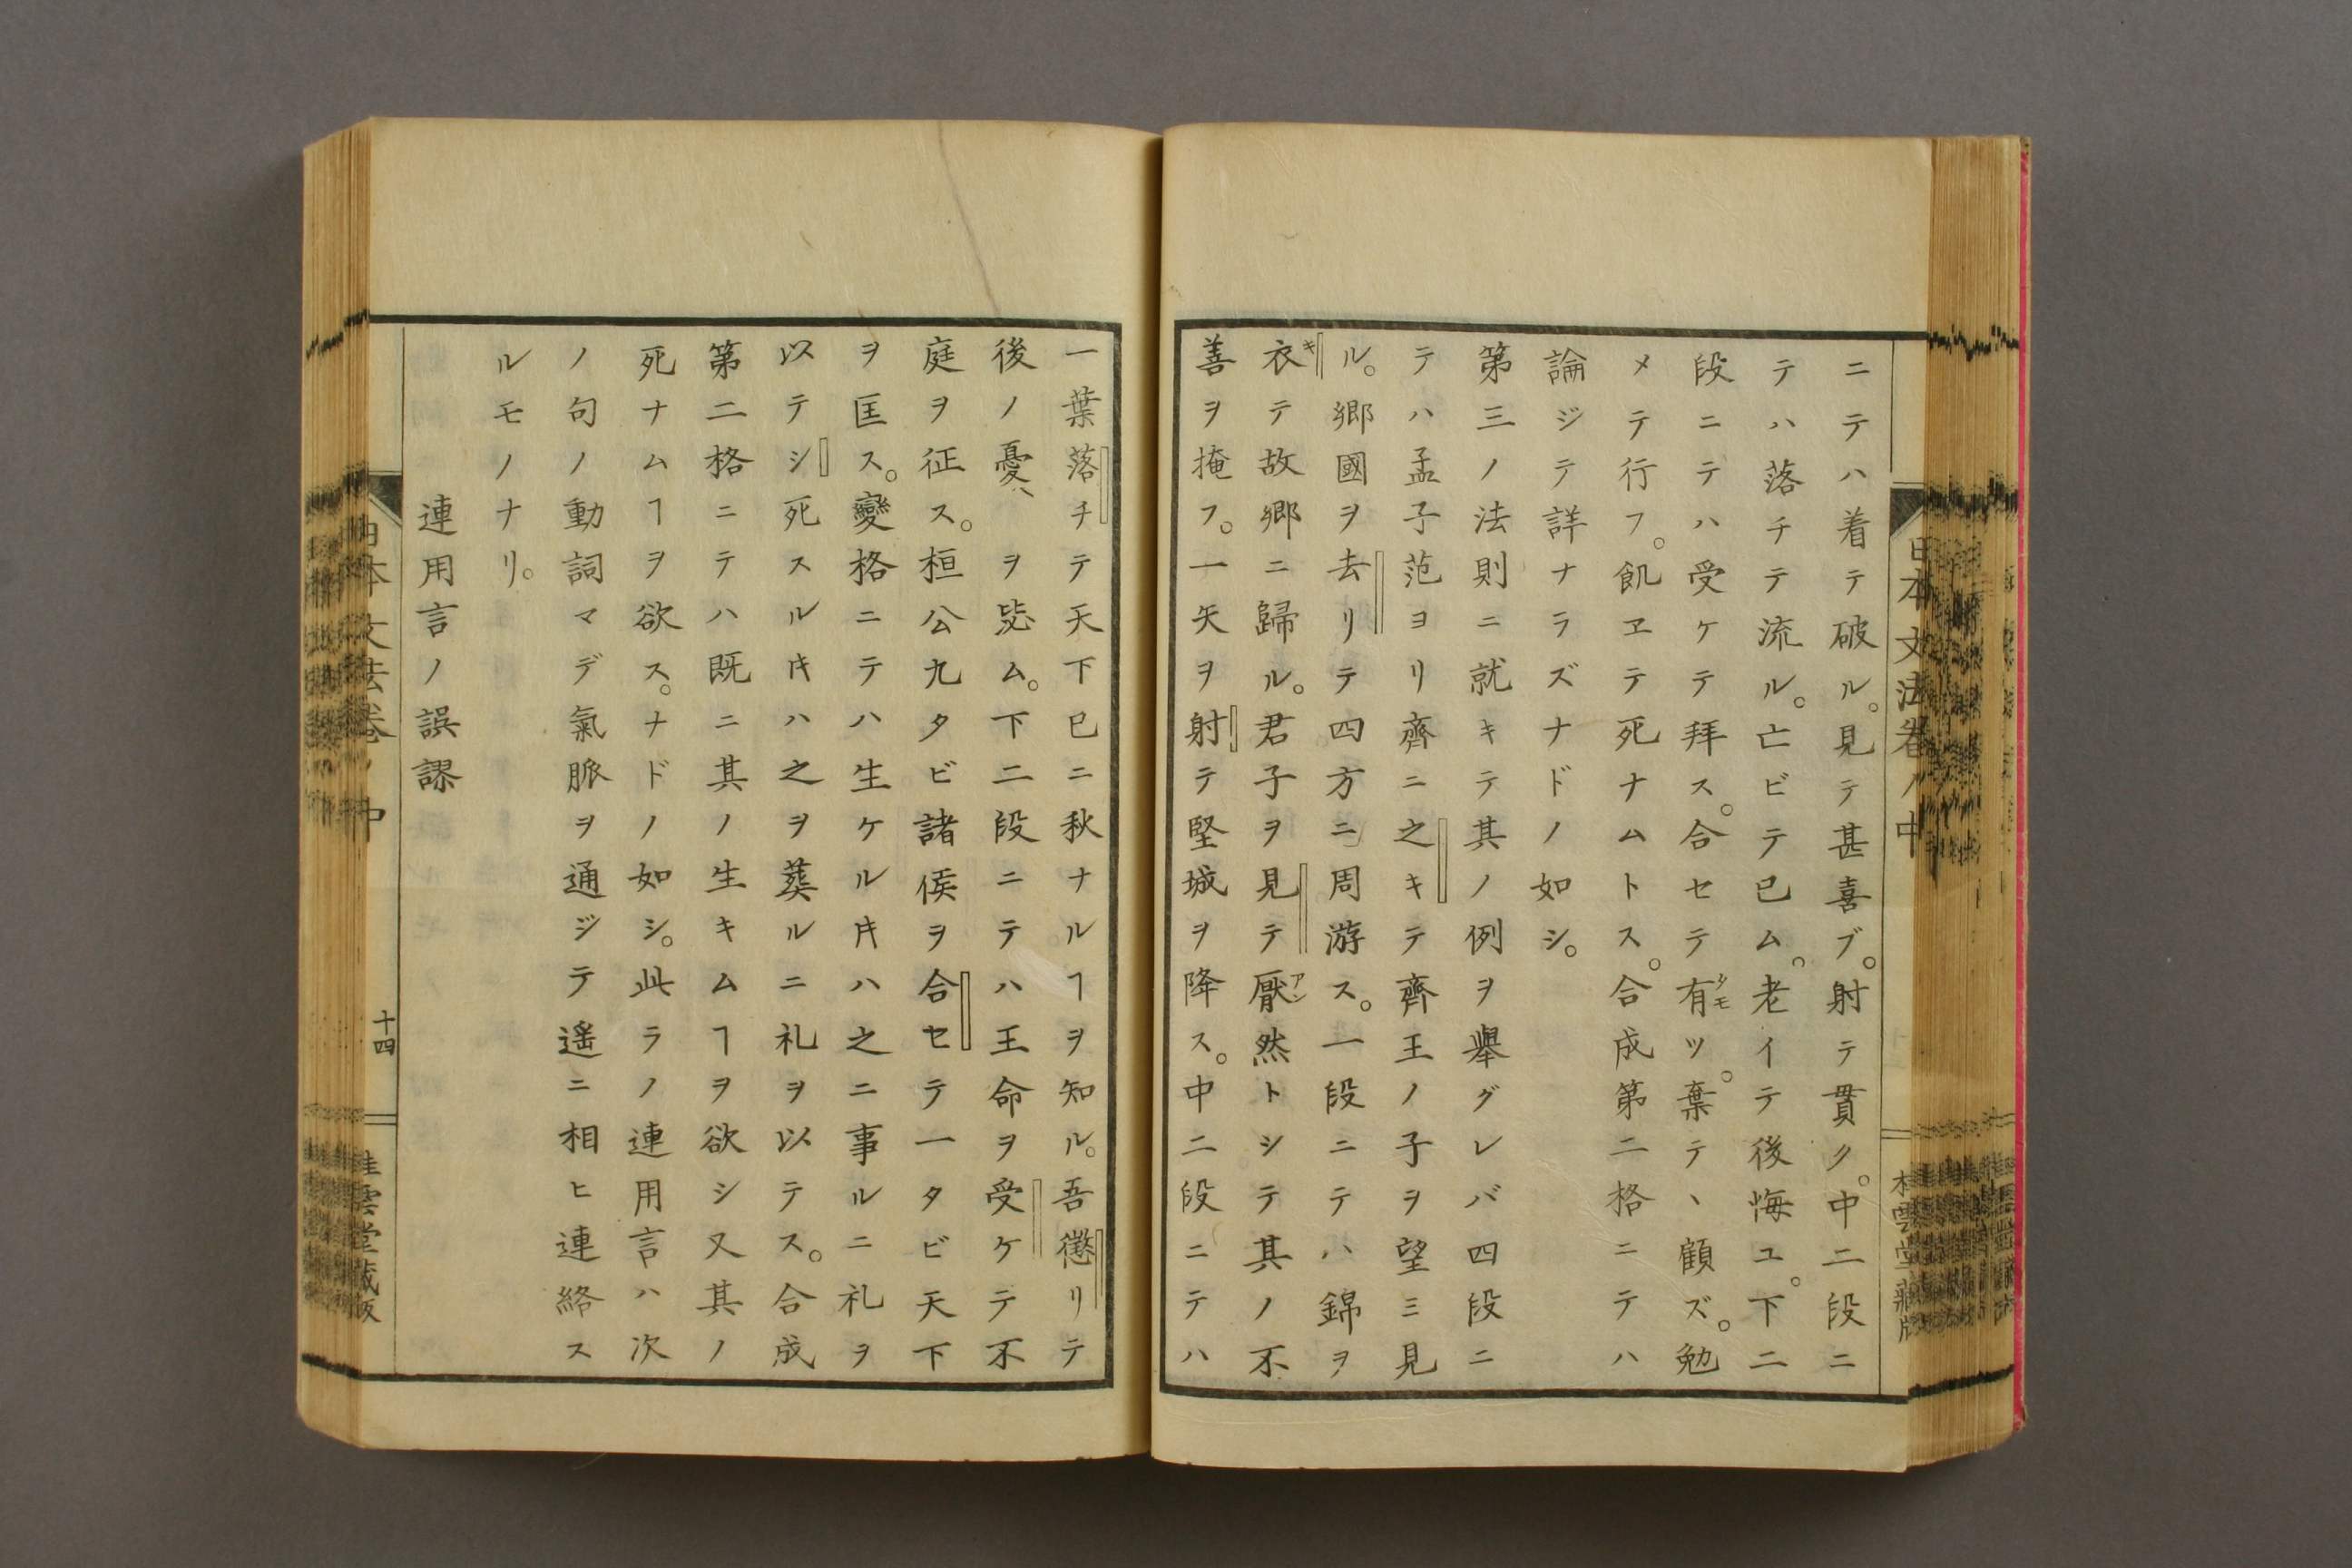 日本文法卷ノ中
ニテハ着テ破ル。見テ甚喜ブ。射テ貫ク。中二段ニ
テハ落チテ流ル。亡ビテ已ム。老イテ後悔ユ。下二
段ニテハ受ケテ拜ス。合セテ有ツ。棄テヽ顧ズ。勉
タモ
メテ行フ。飢ヱテ死ナムトス。合成第二格ニテハ
論ジテ詳ナラズナドノ如シ。
第三ノ法則ニ就キテ其ノ例ヲ擧グレバ四段ニ
テハ孟子范ヨリ齊ニ之キテ齊王ノ子ヲ望ミ見
ル。郷國ヲ去リテ四方ニ周游ス。一段ニテハ錦ヲ
衣テ故郷ニ歸ル。君子ヲ見テ厭然トシテ其ノ不
キ
アン
善ヲ掩フ。一矢ヲ射テ堅城ヲ降ス。中二段ニテハ
一葉落チテ天下已ニ秋ナルヿヲ知ル。吾懲リテ
後ノ憂ヲ毖ム。下二段ニテハ王命ヲ受ケテ不
庭ヲ征ス。桓公九タビ諸侯ヲ合セテ一タビ天下
ヲ匡ス。變格ニテハ生ケルキハ之ニ事ルニ礼ヲ
以テシ死スルキハ之ヲ葬ルニ礼ヲ以テス。合成
第二格ニテハ既ニ其ノ生キムヿヲ欲シ又其ノ
死ナムヿヲ欲ス。ナドノ如シ。此ラノ連用言ハ次
ノ句ノ動詞マデ氣脈ヲ通ジテ遥ニ相ヒ連絡ス
ルモノナリ。
連用言ノ誤謬
日本文法卷ノ中
十四